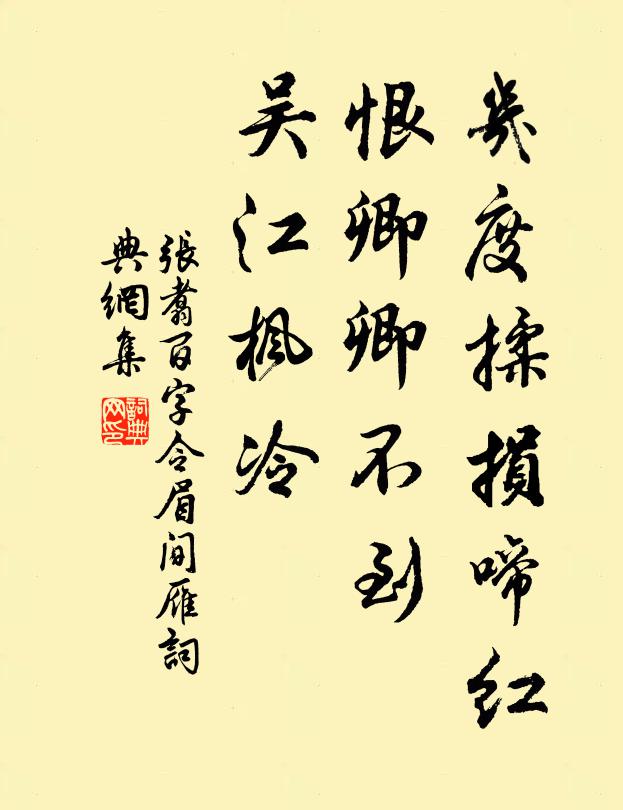 幾度揉損啼紅
恨卿卿不到
吴江楓冷
張翥百字令眉間雁詞
典網集
詞典網印